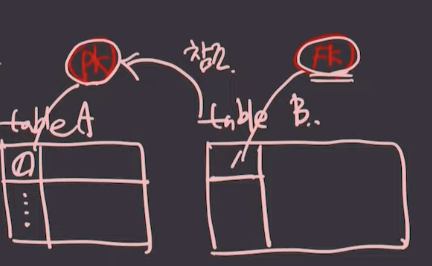 PK 참조 FK
table A table B..